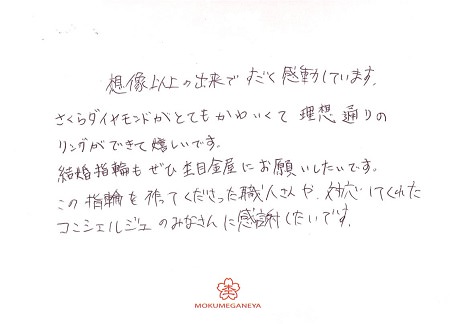 想像以上の出来で すごく感動しています。
さくらダイヤモンドがとてもかわいくて 理想通りの
リングができて嬉しいです。
結婚指輪もぜひ杢目金屋にお願いしたいです。
この指輪を作ってくださった職人さんや、対応してくれた
コンシェルジュのみなさんに感謝したいです。
MOKUMEGANEYA